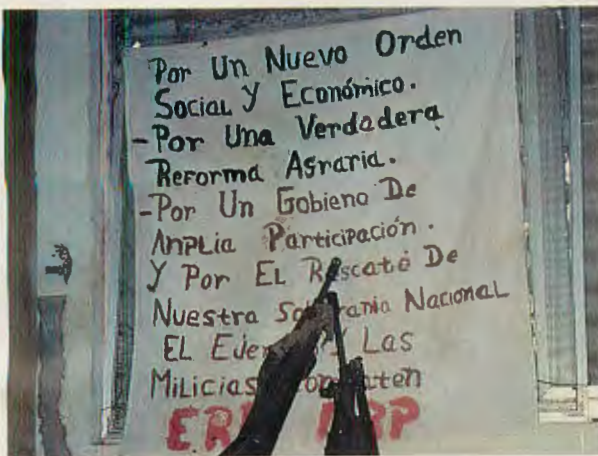 Por Un Nuevo Orden
Social Y Económico.
-Por Una Verdadera
Reforma Agraria.
-Por Un Gobieno De
Amplia Participación.
Y Por El Rescate De
Nuestra Nacional
El Las
Milicias